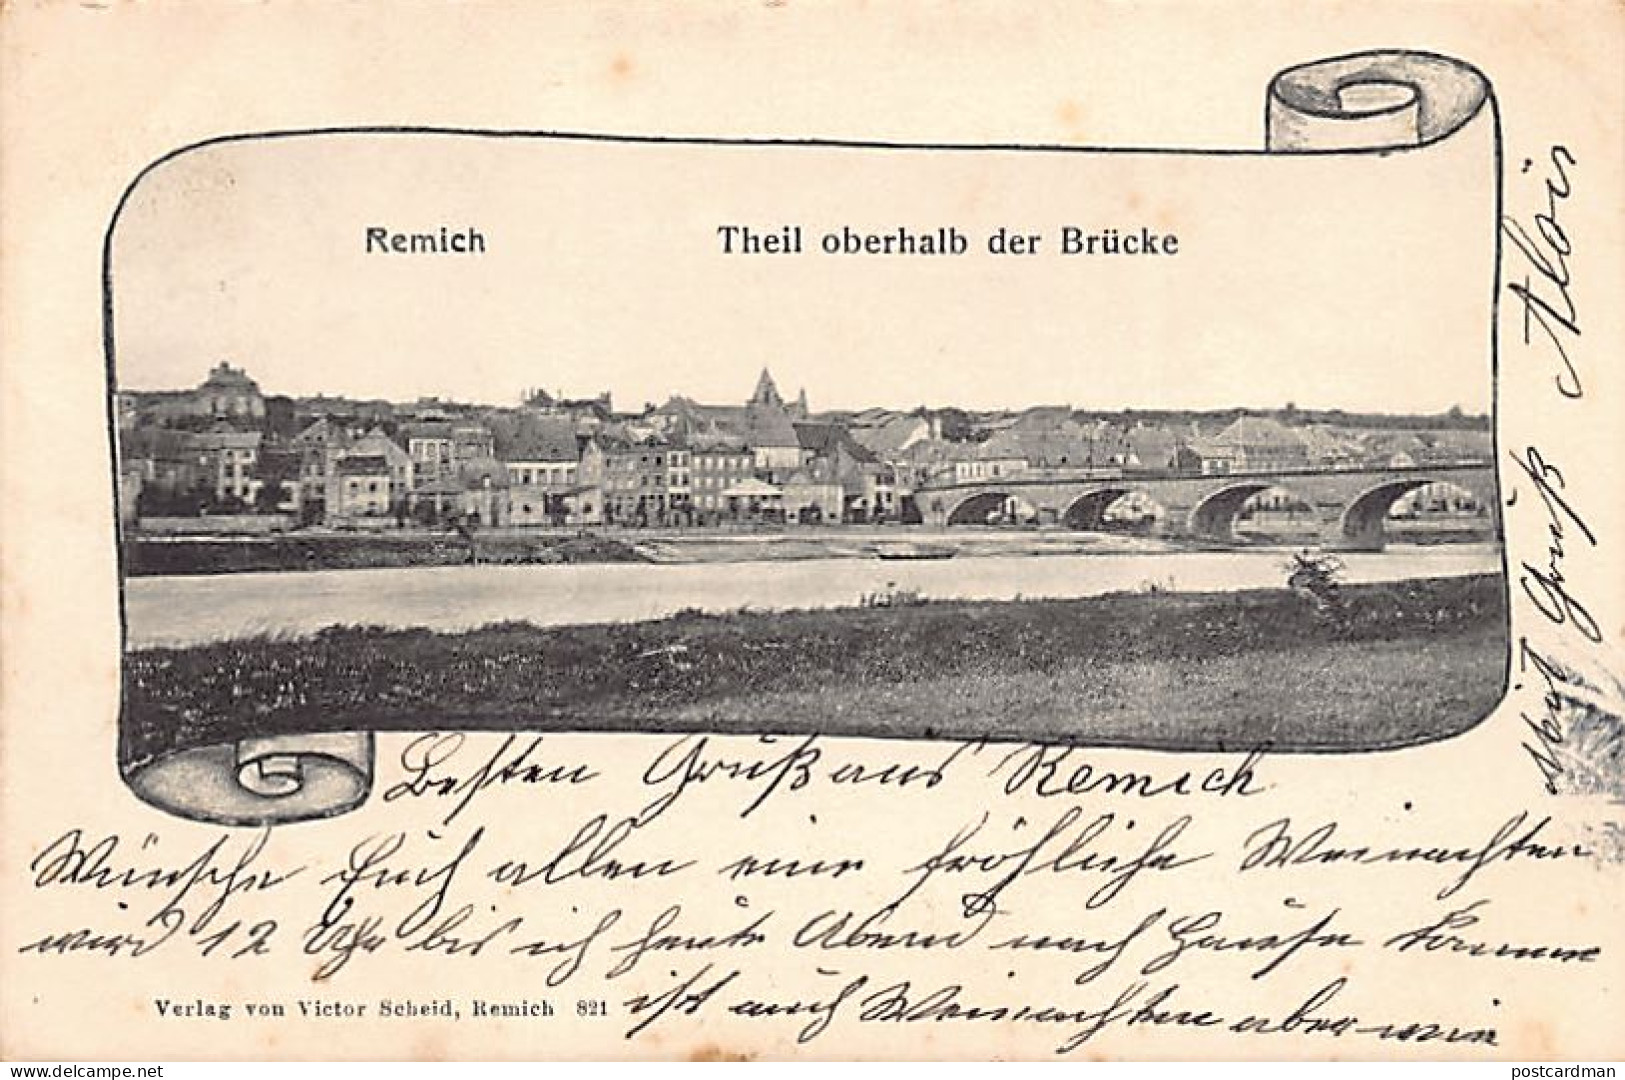 Remich
Theil oberhalb der Brücke
Besten Gruß aus Remich
Wünsche Euch allen eine fröhliche Weinachten
wird 12 Uhr bis ich heute Abend nach Hause komme
ist auch Weinachten aber wie
Mit Gruß Alois
Verlag von Victor Scheid, Remich 821
www.delcampe.net
postcardman